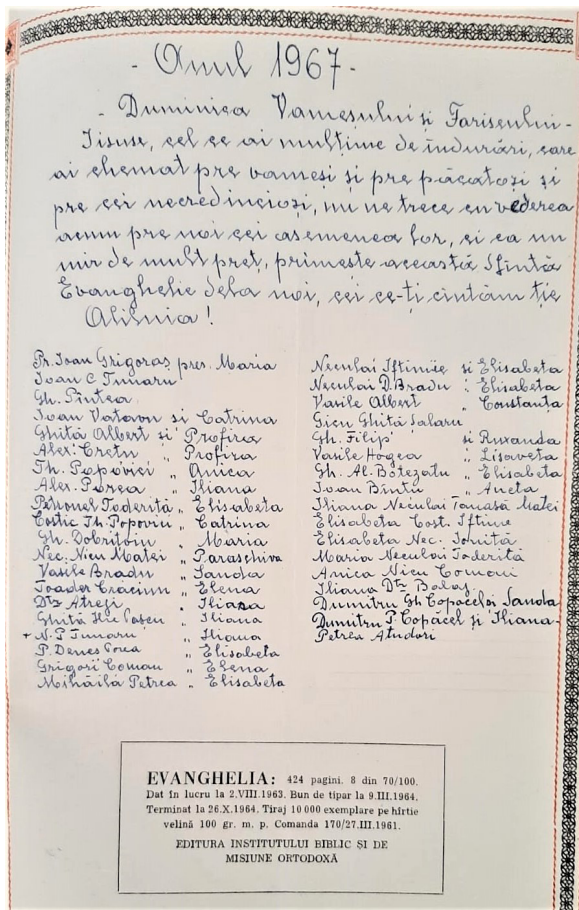 - Anul 1967 -
- Duminica Vameșului și Fariseului -
Iisuse, cel ce ai mulțime de îndurări, care
ai chemat pre vameși și pre păcătoși și
pre cei necredincioși, nu ne trece cu vederea
acum pre noi cei asemenea lor, și ca un
mir de mult preț, primește această Sfîntă
Evanghelie dela noi, cei ce-ți cîntăm ție
Aliluia!
Pr. Ioan Grigoraș pres. Maria
Ioan C Timaru
Gh. Pîntea
Ioan Vatavu si Catrina
Ghiță Albert si Profira
Alex. Crețu " Profira
Th. Popovici " Anica
Alex. Purea " Iliana
Petronel Toderită " Elisabeta
Costic Th. Popoviciu " Catrina
Gh. Dobrițoiu " Maria
Nec. Nicu Matei " Paraschiva
Vasile Bradu " Sanda
Toader Craciun " Elena
Dtu Atregi " Iliana
Ghiță Ilie Pascu " Iliana
+ N. P Timaru " Iliana
P. Denes " Elisabeta
Grigori Coman " Elena
Mihăilă Petrea " Elisabeta
Neculai Iftimie si Elisabeta
Neculai D. Bradu " Elisabeta
Vasile Albert " Constanta
Gicu Ghiță Salaru
Gh. Filip si Ruxanda
Vasile Hogea " Lisaveta
Gh. Al. Botezatu " Elisabeta
Ioan Bintu " Aneta
Iliana Neculai Tanasă Matei
Elisabeta Cost. Iftime
Elisabeta Nec. Ioniță
Maria Neculai Toderită
Anica Nicu Comani
Iliana Dtu Balaș
Dumitru Gh Copăceloi Sanda
Dumitru P. Copăcel și Iliana-
Petrea Atudori
EVANGHELIA: 424 pagini. 8 din 70/100.
Dat în lucru la 2.VIII.1963. Bun de tipar la 9.III.1964.
Terminat la 26.X.1964. Tiraj 10 000 exemplare pe hîrtie
velină 100 gr. m. p. Comanda 170/27.III.1961.
EDITURA INSTITUTULUI BIBLIC ȘI DE
MISIUNE ORTODOXĂ